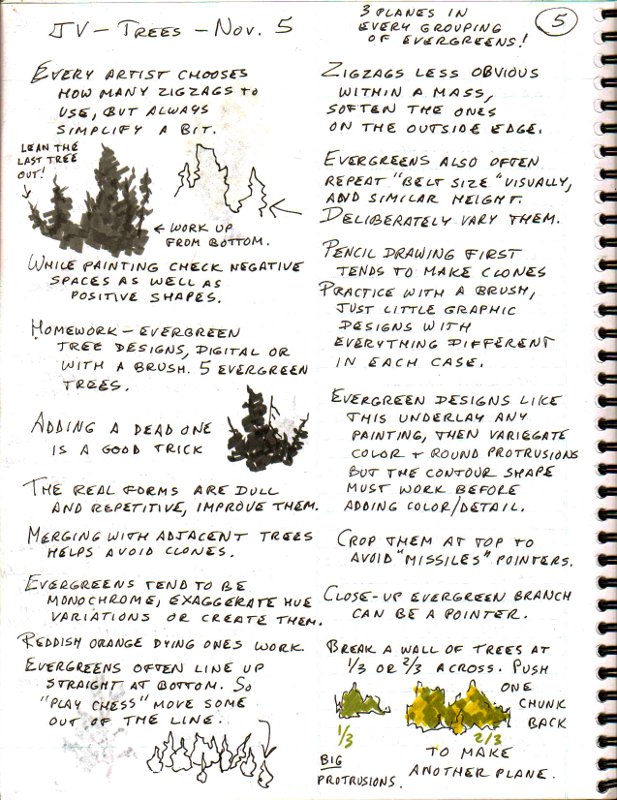 JV - TREES - NOV. 5
EVERY ARTIST CHOOSES
HOW MANY ZIGZAGS TO
USE, BUT ALWAYS
SIMPLIFY A BIT.
LEAN THE
LAST TREE
OUT!
← WORK UP
FROM BOTTOM.
WHILE PAINTING CHECK NEGATIVE
SPACES AS WELL AS
POSITIVE SHAPES.
HOMEWORK - EVERGREEN
TREE DESIGNS, DIGITAL OR
WITH A BRUSH. 5 EVERGREEN
TREES.
ADDING A DEAD ONE
IS A GOOD TRICK
THE REAL FORMS ARE DULL
AND REPETITIVE, IMPROVE THEM.
MERGING WITH ADJACENT TREES
HELPS AVOID CLONES.
EVERGREENS TEND TO BE
MONOCHROME, EXAGGERATE HUE
VARIATIONS OR CREATE THEM.
REDDISH ORANGE DYING ONES WORK.
EVERGREENS OFTEN LINE UP
STRAIGHT AT BOTTOM. SO
"PLAY CHESS" MOVE SOME
OUT OF THE LINE.
3 PLANES IN
EVERY GROUPING
OF EVERGREENS!
5
ZIGZAGS LESS OBVIOUS
WITHIN A MASS,
SOFTEN THE ONES
ON THE OUTSIDE EDGE.
EVERGREENS ALSO OFTEN
REPEAT "BELT SIZE" VISUALLY,
AND SIMILAR HEIGHT.
DELIBERATELY VARY THEM.
PENCIL DRAWING FIRST
TENDS TO MAKE CLONES
PRACTICE WITH A BRUSH,
JUST LITTLE GRAPHIC
DESIGNS WITH
EVERYTHING DIFFERENT
IN EACH CASE.
EVERGREEN DESIGNS LIKE
THIS UNDERLAY ANY
PAINTING, THEN VARIEGATE
COLOR + ROUND PROTRUSIONS
BUT THE CONTOUR SHAPE
MUST WORK BEFORE
ADDING COLOR/DETAIL.
CROP THEM AT TOP TO
AVOID "MISSILES" POINTERS.
CLOSE-UP EVERGREEN BRANCH
CAN BE A POINTER.
BREAK A WALL OF TREES AT
1/3 OR 2/3 ACROSS. PUSH
ONE
CHUNK
BACK
1/3
2/3
TO MAKE
ANOTHER PLANE.
BIG
PROTRUSIONS.